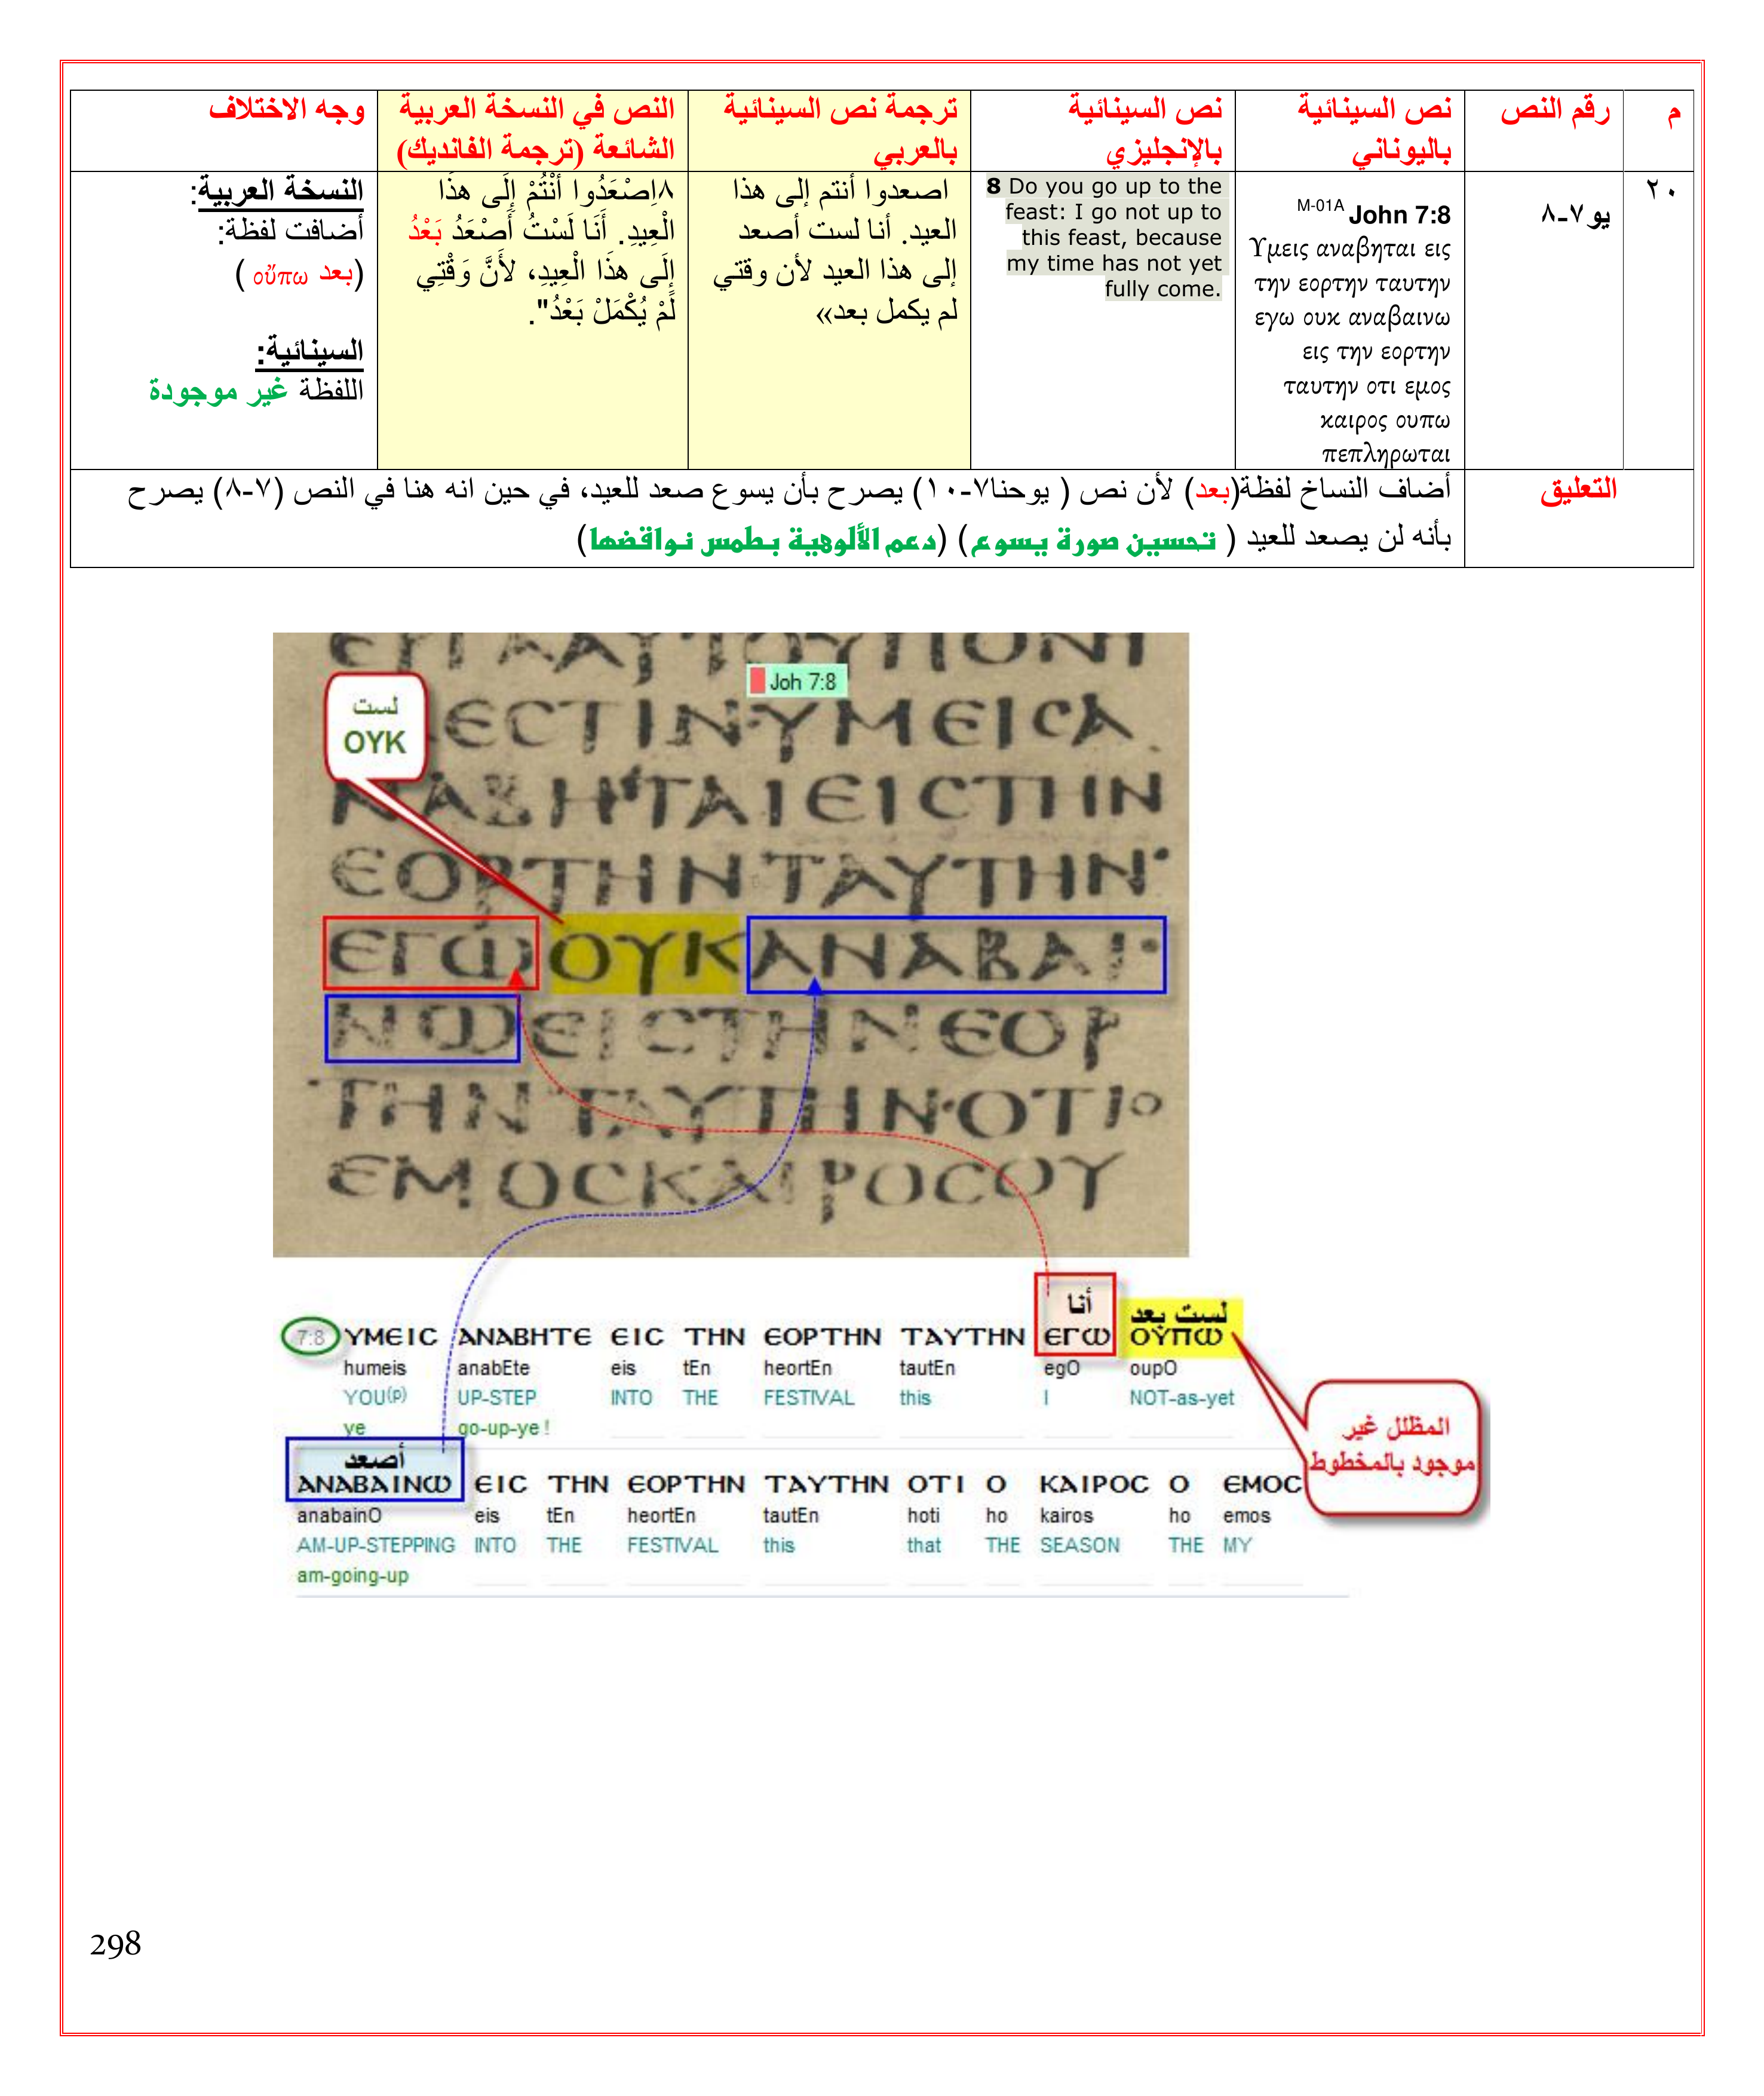 م
رقم النص
نص السينائية
باليوناني
نص السينائية
بالإنجليزي
ترجمة نص السينائية
بالعربي
النص في النسخة العربية
الشائعة (ترجمة الفانديك)
وجه الاختلاف
٢٠
يو ٧-٨
M-01A John 7:8
Υμεις αναβηται εις
την εορτην ταυτην
εγω ουκ αναβαινω
εις την εορτην
ταυτην οτι εμος
καιρος ουπω
πεπληρωται
8 Do you go up to the
feast: I go not up to
this feast, because
my time has not yet
fully come.
اصعدوا أنتم إلى هذا
العيد. أنا لست أصعد
إلى هذا العيد لأن وقتي
لم يكمل بعد»
٨اِصْعَدُوا أَنْتُمْ إِلَى هذَا
الْعِيدِ. أَنَا لَسْتُ أَصْعَدُ بَعْدُ
إِلَى هذَا الْعِيدِ، لأَنَّ وَقْتِي
لَمْ يُكْمَلْ بَعْدُ".
النسخة العربية:
أضافت لفظة:
(بعد οὔπω )
السينائية:
اللفظة غير موجودة
التعليق
أضاف النساخ لفظة(بعد) لأن نص ( يوحنا٧-١٠) يصرح بأن يسوع صعد للعيد، في حين انه هنا في النص (٧-٨) يصرح
بأنه لن يصعد للعيد ( تحسين صورة يسوع) (دعم الألوهية بطمس نواقضها)
Joh 7:8
لست
ΟΥΚ
ⲈCΤΙΝΥΜⲈΙCΑ
ΝΑΒΗΤΑΙⲈΙCΤΗΝ
ⲈΟΡΤΗΝΤΑΥΤΗΝ·
ⲈΓⲰΟΥΚΑΝΑΒΑΙ·
ΝⲰⲈΙCΤΗΝⲈΟΡ
ΤΗΝΤΑΥΤΗΝ·ΟΤΙΟ
ⲈΜΟCΚΑΙΡΟCΟΥ
أنا
لست بعد
7:8 ΥΜⲈΙC ΑΝΑΒΗΤⲈ ⲈΙC ΤΗΝ ⲈΟΡΤΗΝ ΤΑΥΤΗΝ ⲈΓⲰ ΟΥΠⲰ
humeis anabEte eis tEn heortEn tautEn egO oupO
YOU(p) UP-STEP INTO THE FESTIVAL this I NOT-as-yet
ye go-up-ye !
المظلل غير
موجود بالمخطوط
أصعد
ΑΝΑΒΑΙΝⲰ ⲈΙC ΤΗΝ ⲈΟΡΤΗΝ ΤΑΥΤΗΝ ΟΤΙ Ο ΚΑΙΡΟC Ο ⲈΜΟC
anabainO eis tEn heortEn tautEn hoti ho kairos ho emos
AM-UP-STEPPING INTO THE FESTIVAL this that THE SEASON THE MY
am-going-up
298